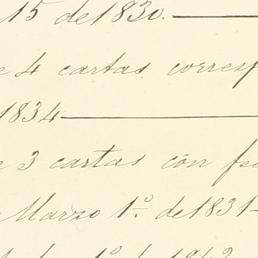 15 de 1830.
e 4 cartas corresp
1834
e 3 cartas con fe
Marzo 1º. de 1831